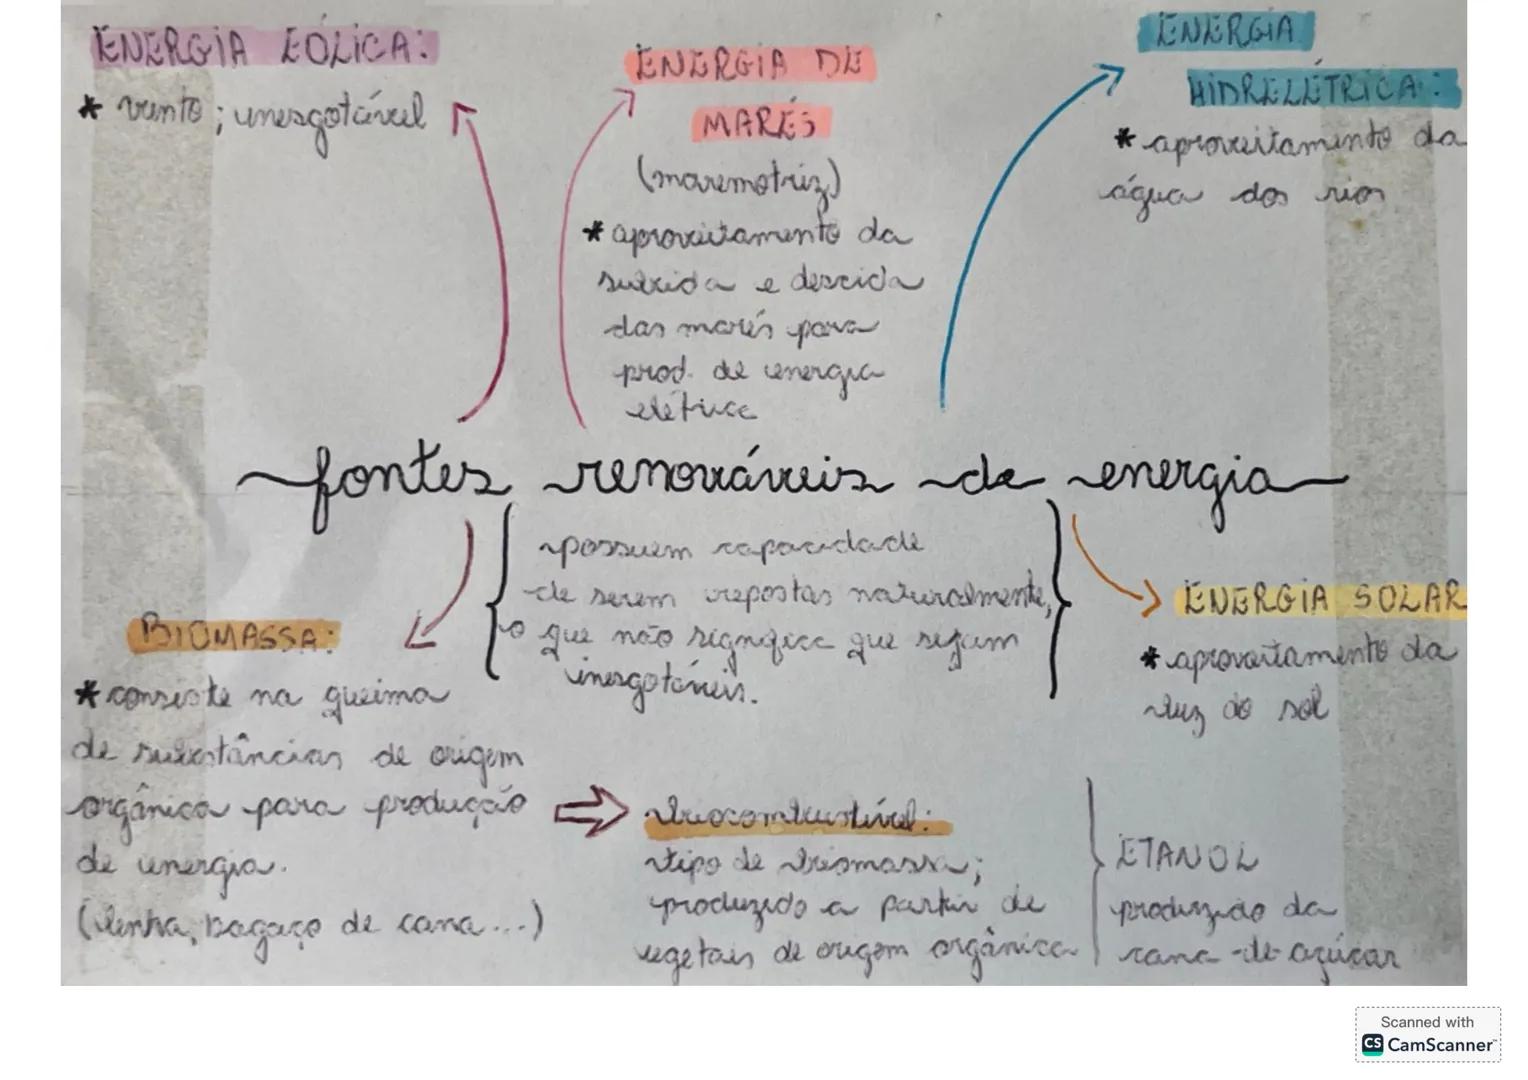 ENERGIA EÓLICA:
* vento; inesgotável
ENERGIA DE
MARÉS
(maremotriz)
* aproveitamento da
subida e descida
das marés para
prod. de energia
elétrica
ENERGIA
HIDRELÉTRICA:
* aproveitamento da
água dos rios
fontes renováveis de energia
possuem capacidade
de serem repostas naturalmente,
o que não significa que sejam
inesgotáveis.
ENERGIA SOLAR
* aproveitamento da
luz do sol
BIOMASSA:
* consiste na queima
de substâncias de origem
orgânica para produção
de energia.
(lenha, bagaço de cana...)
biocombustível:
tipo de biomassa;
produzido a partir de
vegetais de origem orgânica
ETANOL
produzido da
cana-de-açúcar
Scanned with
CS CamScanner